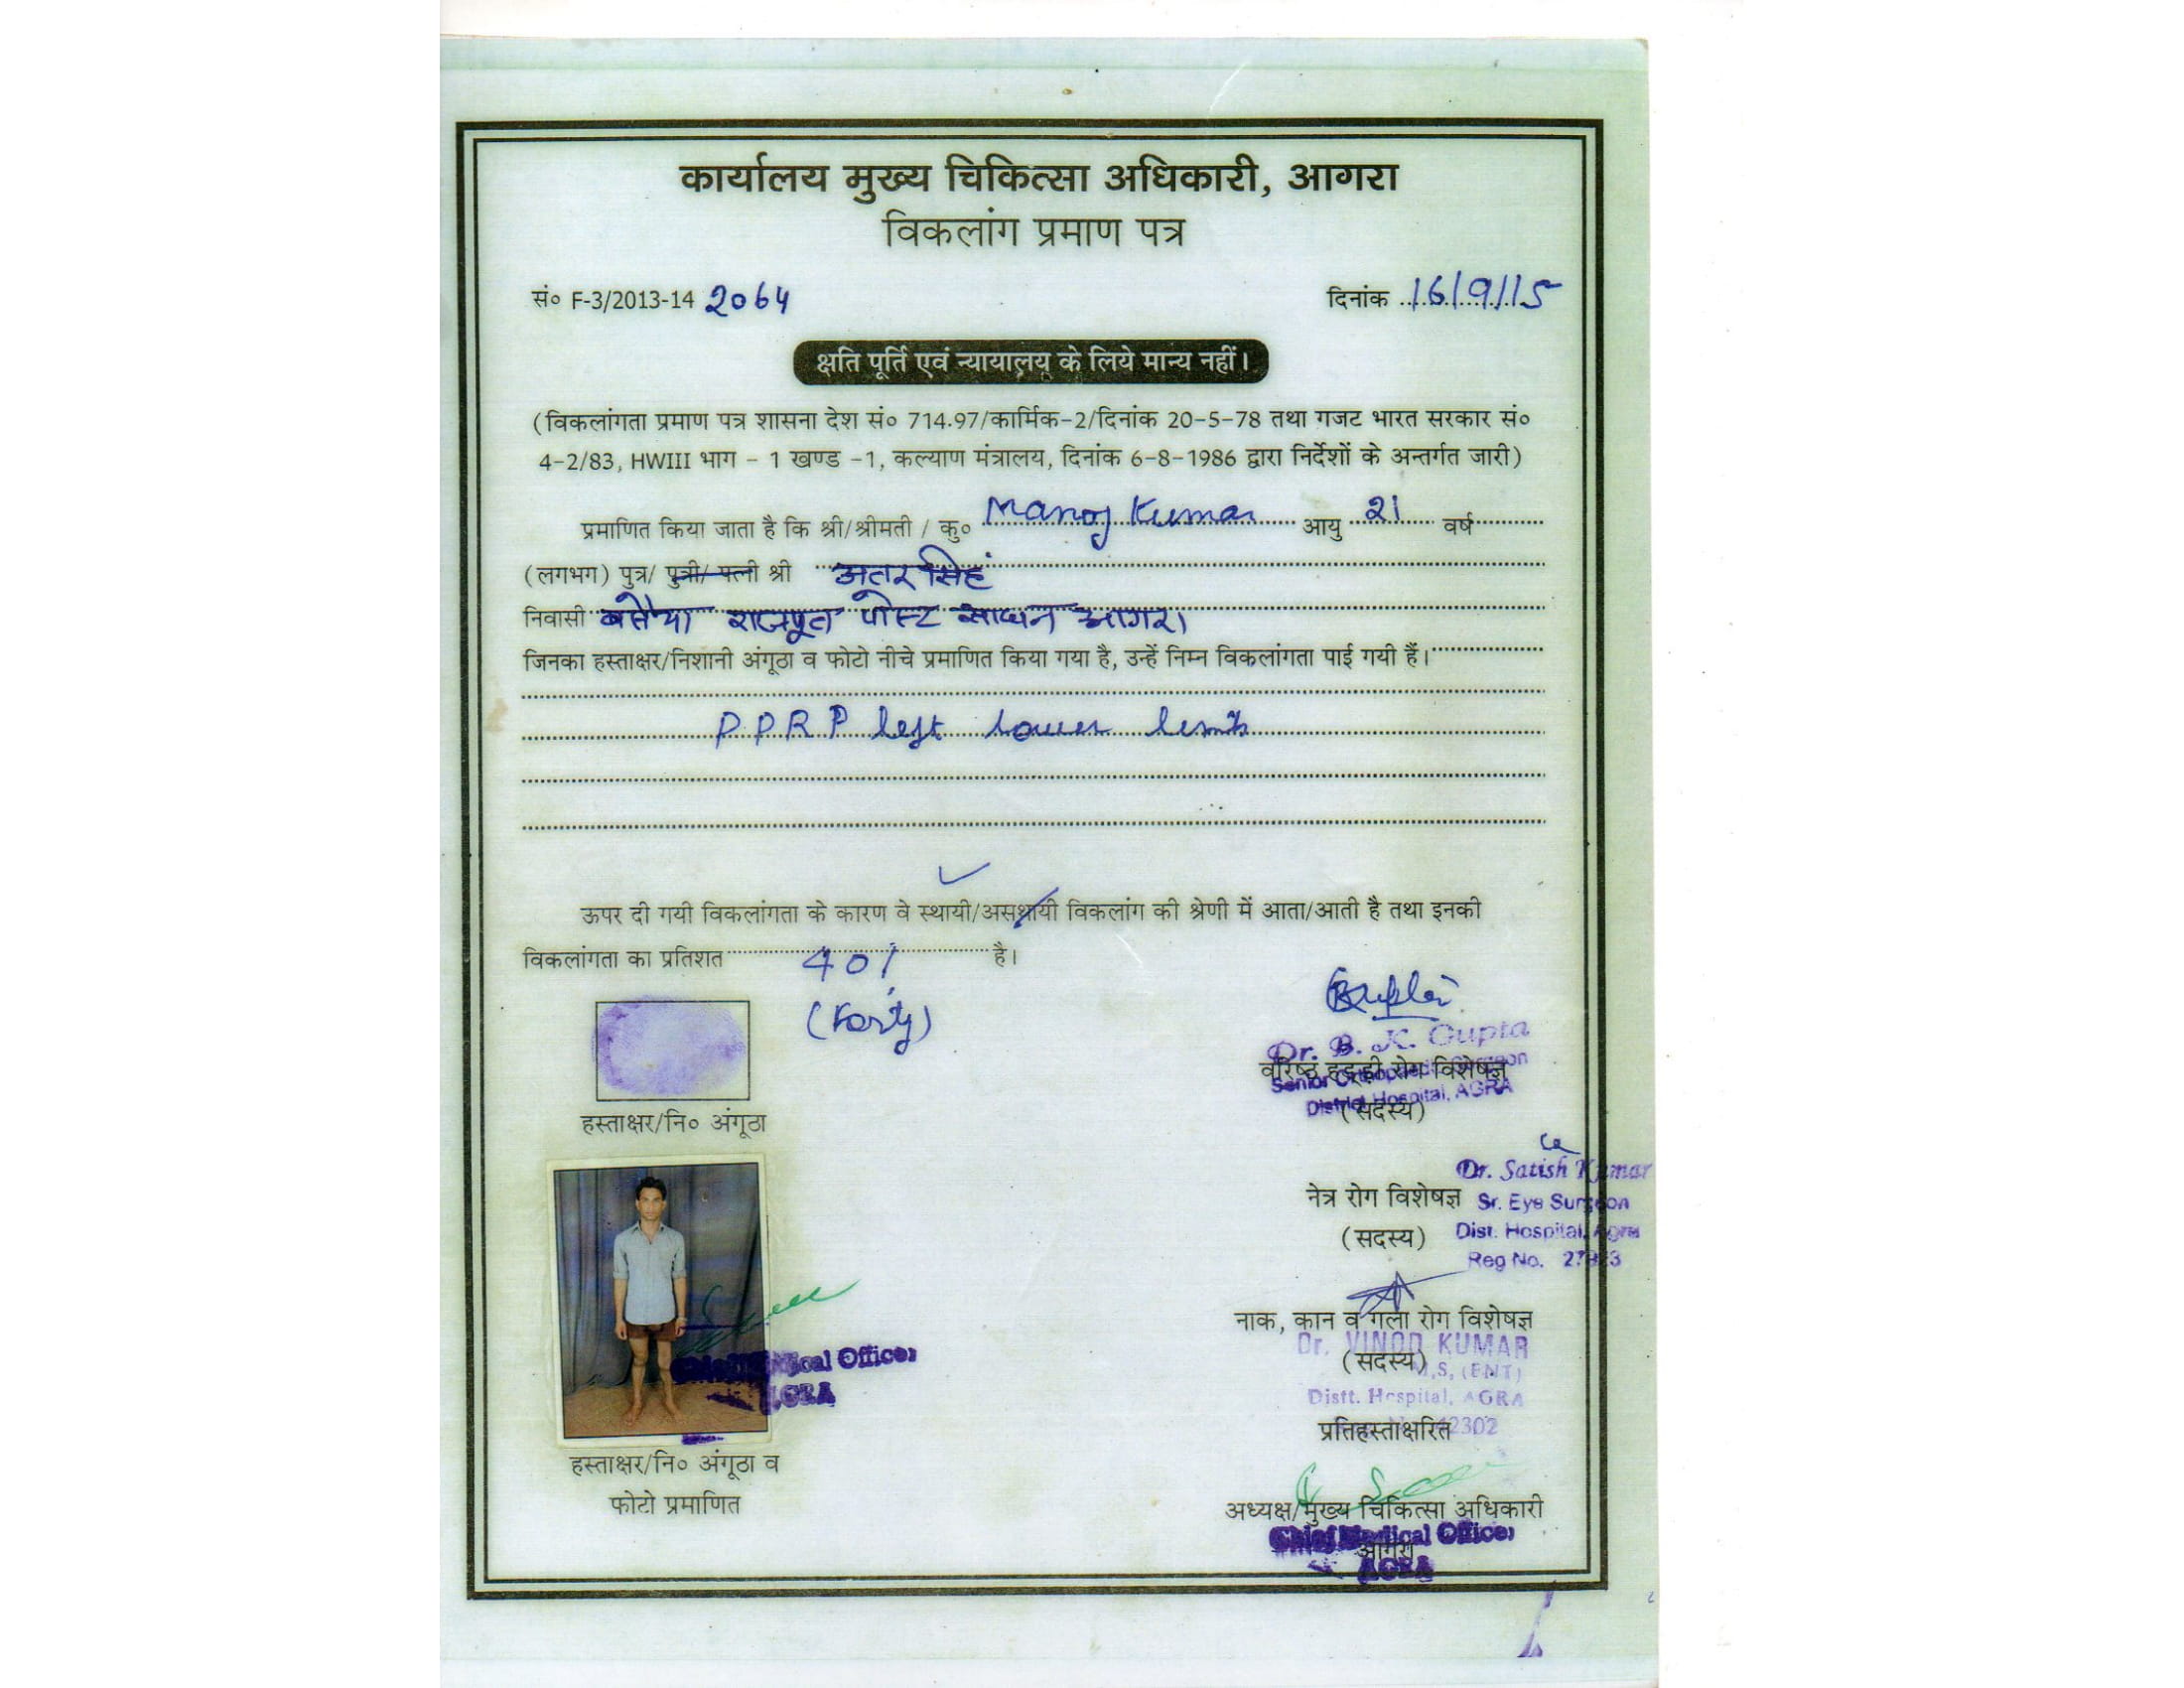 कार्यालय मुख्य चिकित्सा अधिकारी, आगरा
विकलांग प्रमाण पत्र
सं० F-3/2013-14 2064
दिनांक 16/9/15
क्षति पूर्ति एवं न्यायालय के लिये मान्य नहीं।
(विकलांगता प्रमाण पत्र शासना देश सं० 714.97/कार्मिक-2/दिनांक 20-5-78 तथा गजट भारत सरकार सं०
4-2/83, HWIII भाग - 1 खण्ड -1, कल्याण मंत्रालय, दिनांक 6-8-1986 द्वारा निर्देशों के अन्तर्गत जारी)
प्रमाणित किया जाता है कि श्री/श्रीमती / कु० Manoj Kumar आयु 21 वर्ष
(लगभग) पुत्र/ पुत्री/ पत्नी श्री अतर सिंह
निवासी बसैया राजपूत पोस्ट साधन आगरा
जिनका हस्ताक्षर/निशानी अंगूठा व फोटो नीचे प्रमाणित किया गया है, उन्हें निम्न विकलांगता पाई गयी हैं।
PPRP left lower limb
ऊपर दी गयी विकलांगता के कारण वे स्थायी/असथायी विकलांग की श्रेणी में आता/आती है तथा इनकी
विकलांगता का प्रतिशत 40% है।
(Forty)
हस्ताक्षर/नि० अंगूठा
Dr. B. K. Gupta
वरिष्ठ हड्डी रोग विशेषज्ञ
Senior Surgeon
District Hospital, AGRA
(सदस्य)
Dr. Satish Kumar
नेत्र रोग विशेषज्ञ Sr. Eye Surgeon
(सदस्य) Dist. Hospital, Agra
Reg No.
नाक, कान व गला रोग विशेषज्ञ
Dr. VINOD KUMAR
(सदस्य) M.S, (ENT)
Distt. Hospital, AGRA
प्रतिहस्ताक्षरित
Chief Medical Officer
AGRA
हस्ताक्षर/नि० अंगूठा व
फोटो प्रमाणित
अध्यक्ष/मुख्य चिकित्सा अधिकारी
Chief Medical Officer
आगरा
AGRA